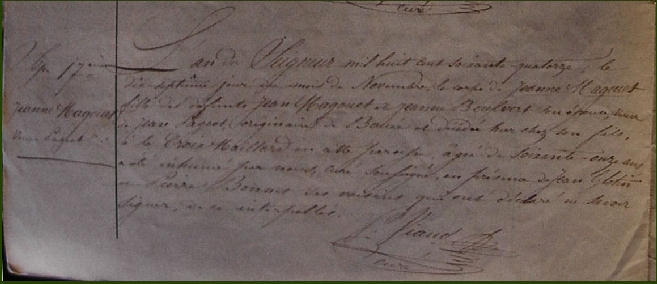 Curé
L'an du Seigneur mil huit cent soixante quatorze, le
Sép. 17ième
dix-septième jour du mois de Novembre, le corps de Jeanne Hagouet
Jeanne Hagouet
fille des défunts Jean Hagouet et Jeanne Boulvert son épouse, veuve
Veuve Paquet
de Jean Paquet, originaire de et décédée hier chez son fils,
à la Croix Maillard en cette paroisse, âgée de soixante-onze ans
a été inhumé par nous, curé soussigné, en présence de Jean
et Pierre Bonnet ses voisins qui ont déclaré ne savoir
signer, de ce interpellés.
Viaud
curé